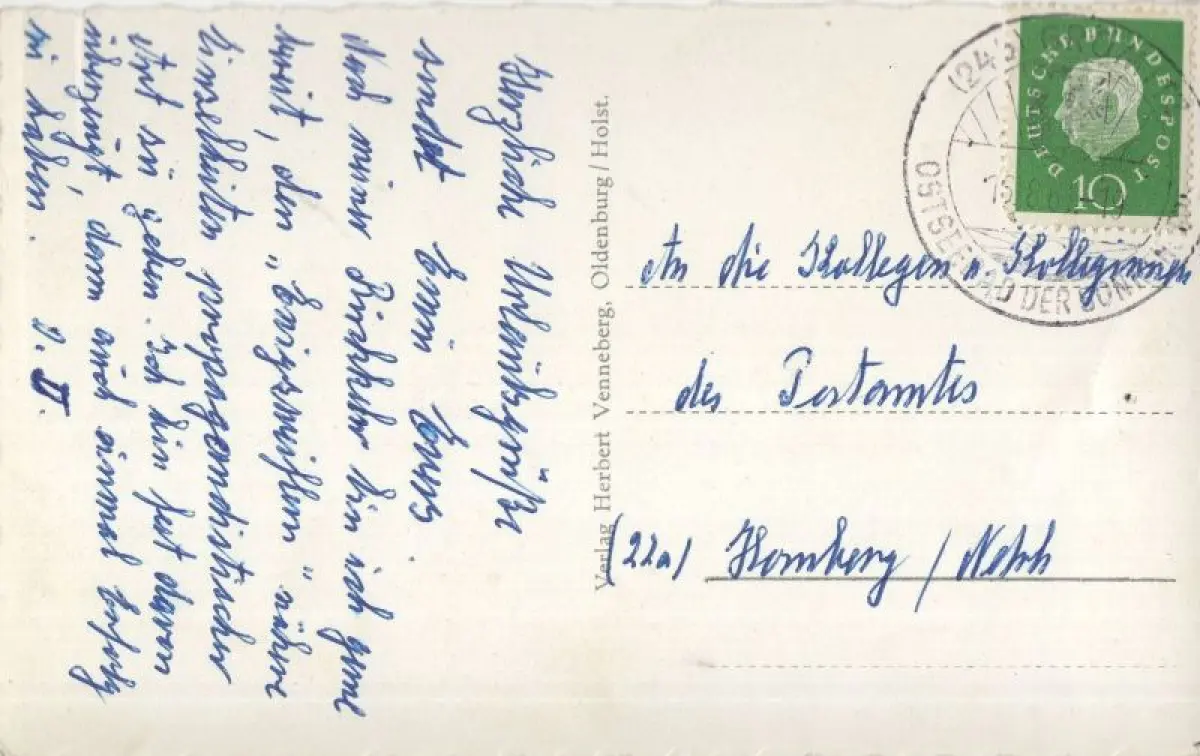 Herzliche Urlaubsgrüße
sendet Erwin
Nach meiner Rückkehr bin ich gerne
bereit, den „ " nähere
Einzelheiten propagandistischer
Art zu geben. Ich bin fest davon
überzeugt, dann auch einmal Erfolg
zu haben. D. O.
Verlag Herbert Venneberg, Oldenburg/Holst.
DEUTSCHE BUNDESPOST
10
(24b)
OSTSEEBAD DER
An die Kollegen u. Kolleginnen
des Postamtes
(22a) Homberg / Ndrh